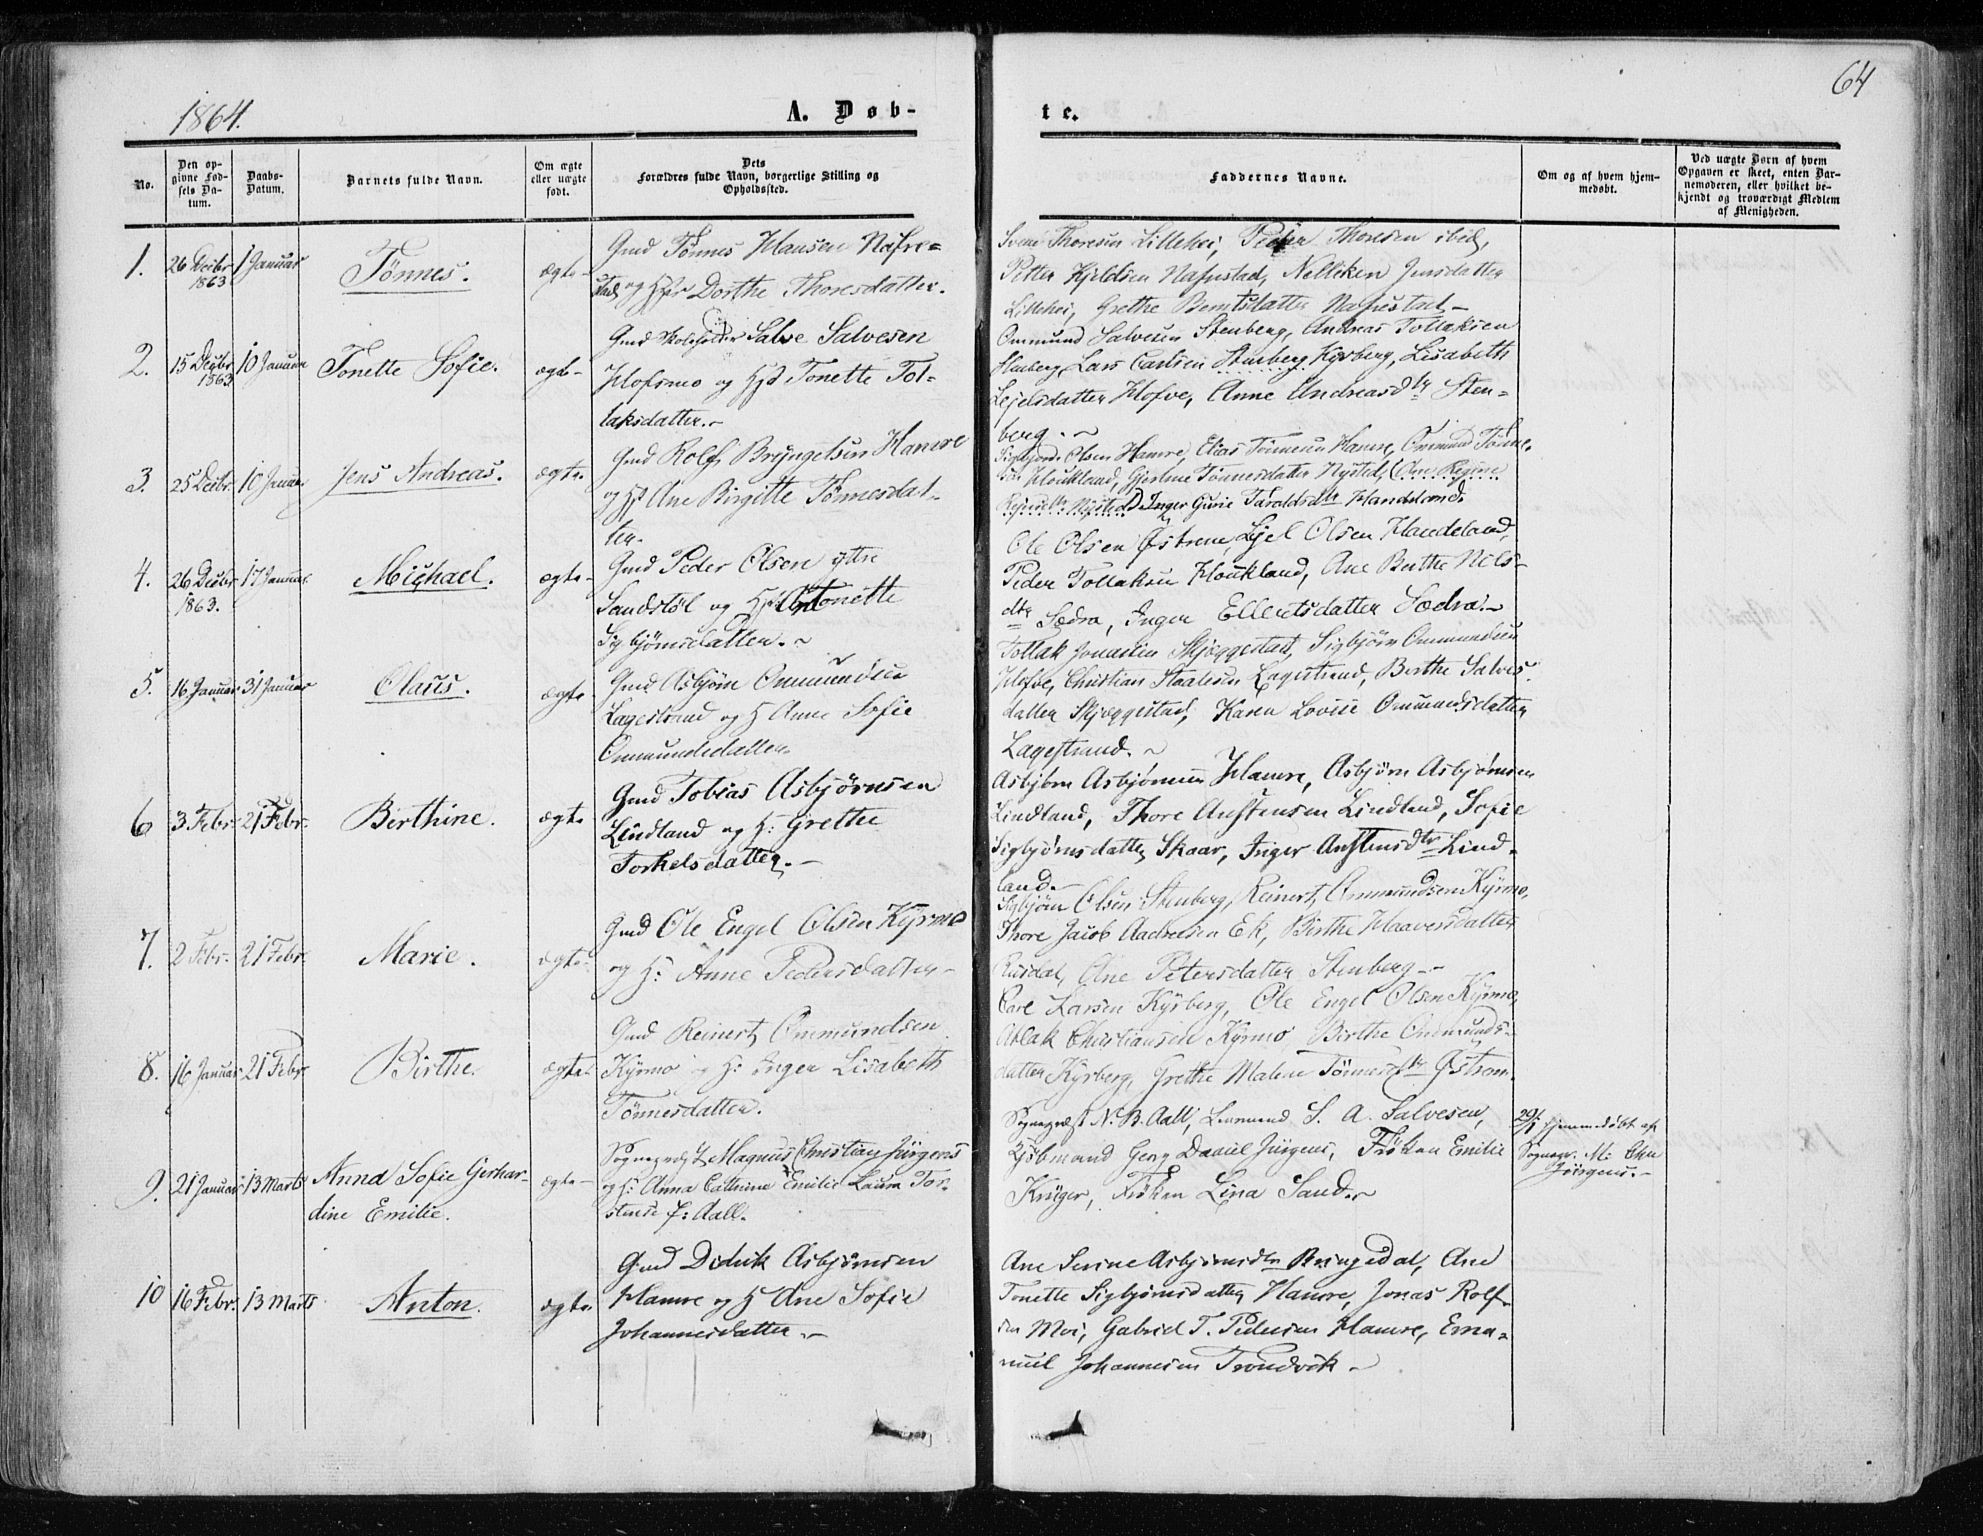 64
1864.
A. Døb-
te.
No.
Den op-
givne Fød-
sels Da-
tum.
Daabs-
Datum.
Barnets fulde Navn.
Om ægte
eller uægte
født.
Dets
Forældres fulde Navn, borgerlige Stilling og
Opholdssted.
Faddernes Navne.
Om og af hvem hjem-
medøbt.
Ved uægte Børn af hvem
Opgaven er skeet, enten Bar-
nemoderen, eller hvilket be-
kjendt og troværdigt Medlem
af Menigheden.
1.
26 Decbr
1863
1 Januar
Tønnes.
ægte
Gmd Tønnes Hansen Nafre=
stad og Hstr Dorthe Thoresdatter.
Thoresen Lillehei, Peder Thoresen ibid,
Petter Kjeldsen Nafrestad, Nelliken Jensdatter
Lillehei, Grethe Berntsdatter Nafrestad -
2.
15 Decbr
1863
10 Januar
Tonette Sofie.
ægte-
Gmd Skoleholder Salve Salvesen
Hofsmo og Hst Tonette Tol-
laksdatter.-
Ommund Salvesen Stenberg, Andreas Tollaksen
Stenberg, Lars Carlsen Stenberg Kyrberg, Lisabeth
Lejelsdatter Hofve, Anne Andreasdtr Sten-
berg.-
3.
25 Decbr.
10 Januar
Jens Andreas.
ægte
Gmd Rolf Bryngelsen Hamre
og H Ane Birgitte Tønnesdat-
ter.
Sigbjørn Olsen Hamre, Elias Tønnesen Hamre, Ommund Tønne-
sen Houkland, Gjertine Tønnesdatter Nysted, Ane Regine
Nysted Inger Gurie Taraldsdtr Handeland.
4.
26 Decbr
1863.
17 Januar.
Michael.
ægte-
Gmd Peder Olsen ytre
Sandstøl og Hst Antonette
Sigbjørnsdatter.-
Ole Olsen Østrem, Lejel Olsen Handeland,
Peder Tollaksen Houkland, Ane Berthe Nils-
dtr Sædra, Inger Ellertsdatter Sædra.-
5.
16 Januar
31 Januar
Olaus.
ægte
Gmd Asbjørn Ommundsen
Lagestrand og H Anne Sofie
Ommundsdatter.
Tollak Jonassen Skjæggestad, Sigbjørn Ommundsen
Hofve, Christian Staalesen Lagestrand, Berthe Salves-
datter Skjæggestad, Karen Lovise Ommundsdatter
Lagestrand.-
6
3 Febr.
21 Febr.
Birthine.
ægte
Gmd Tobias Asbjørnsen
Lindland og H: Grethe
Torkelsdatter.-
Asbjørn Asbjørnsen Hamre, Asbjørn Asbjørnsen
Lindland, Thore Anstensen Lindland, Sofie
Sigbjørnsdatter Skaar, Inger Anstensdtr Lind-
land.-
7.
2 Febr.
21 Febr.
Marie.
ægte.
Gmd Ole Engel Olsen Kyrmo
og H: Anne Pedersdatter-
Sigbjørn Olsen Stenberg, Reinert Ommundsen Kyrmo,
Thore Jacob Aadnesen Ek, Birthe Haaversdatter
Ane Petersdatter Stenberg.-
8.
16 Januar
21 Febr.
Birthe.
ægte
Gmd Reinert Ommundsen
Kyrmo og H: Inger Lisabeth
Tønnesdatter.
Carl Larsen Kyrberg, Ole Engel Olsen Kyrmo,
Aslak Christiansen Kyrmo Birthe Ommunds-
datter Kyrberg, Grethe Malene Tønnesdtr Østrem.
9.
21 Januar
13 Marts
Anna Sofie Gerhar-
dine Emilie.
ægte-
Sognepræst Magnus Christian Jürgens
og H: Anna Cathrine Emilie Laura Tor-
stense f: Aall.
Sognepræst N. B. Aall, Lensmand S. A. Salvesen,
Kjøbmand Georg Daniel Jürgens, Frøken Emilie
Krüger, Frøken Lina Sand.-
29/1 hjemmedøbt af
Sognepr. M: Chr
Jürgens.-
10
16 Febr.
13 Marts
Anton.
ægte
Gmd Didrik Asbjørnsen
Hamre og H Ane Sofie
Johannesdatter.-
Ane Serine Asbjørnsdtr Ringedal, Ane
Tonette Sigbjørnsdatter Hamre, Jonas Rolf-
sen Moi, Gabriel T. Pedersen Hamre, Ema-
nuel Johannesen Trondvik -